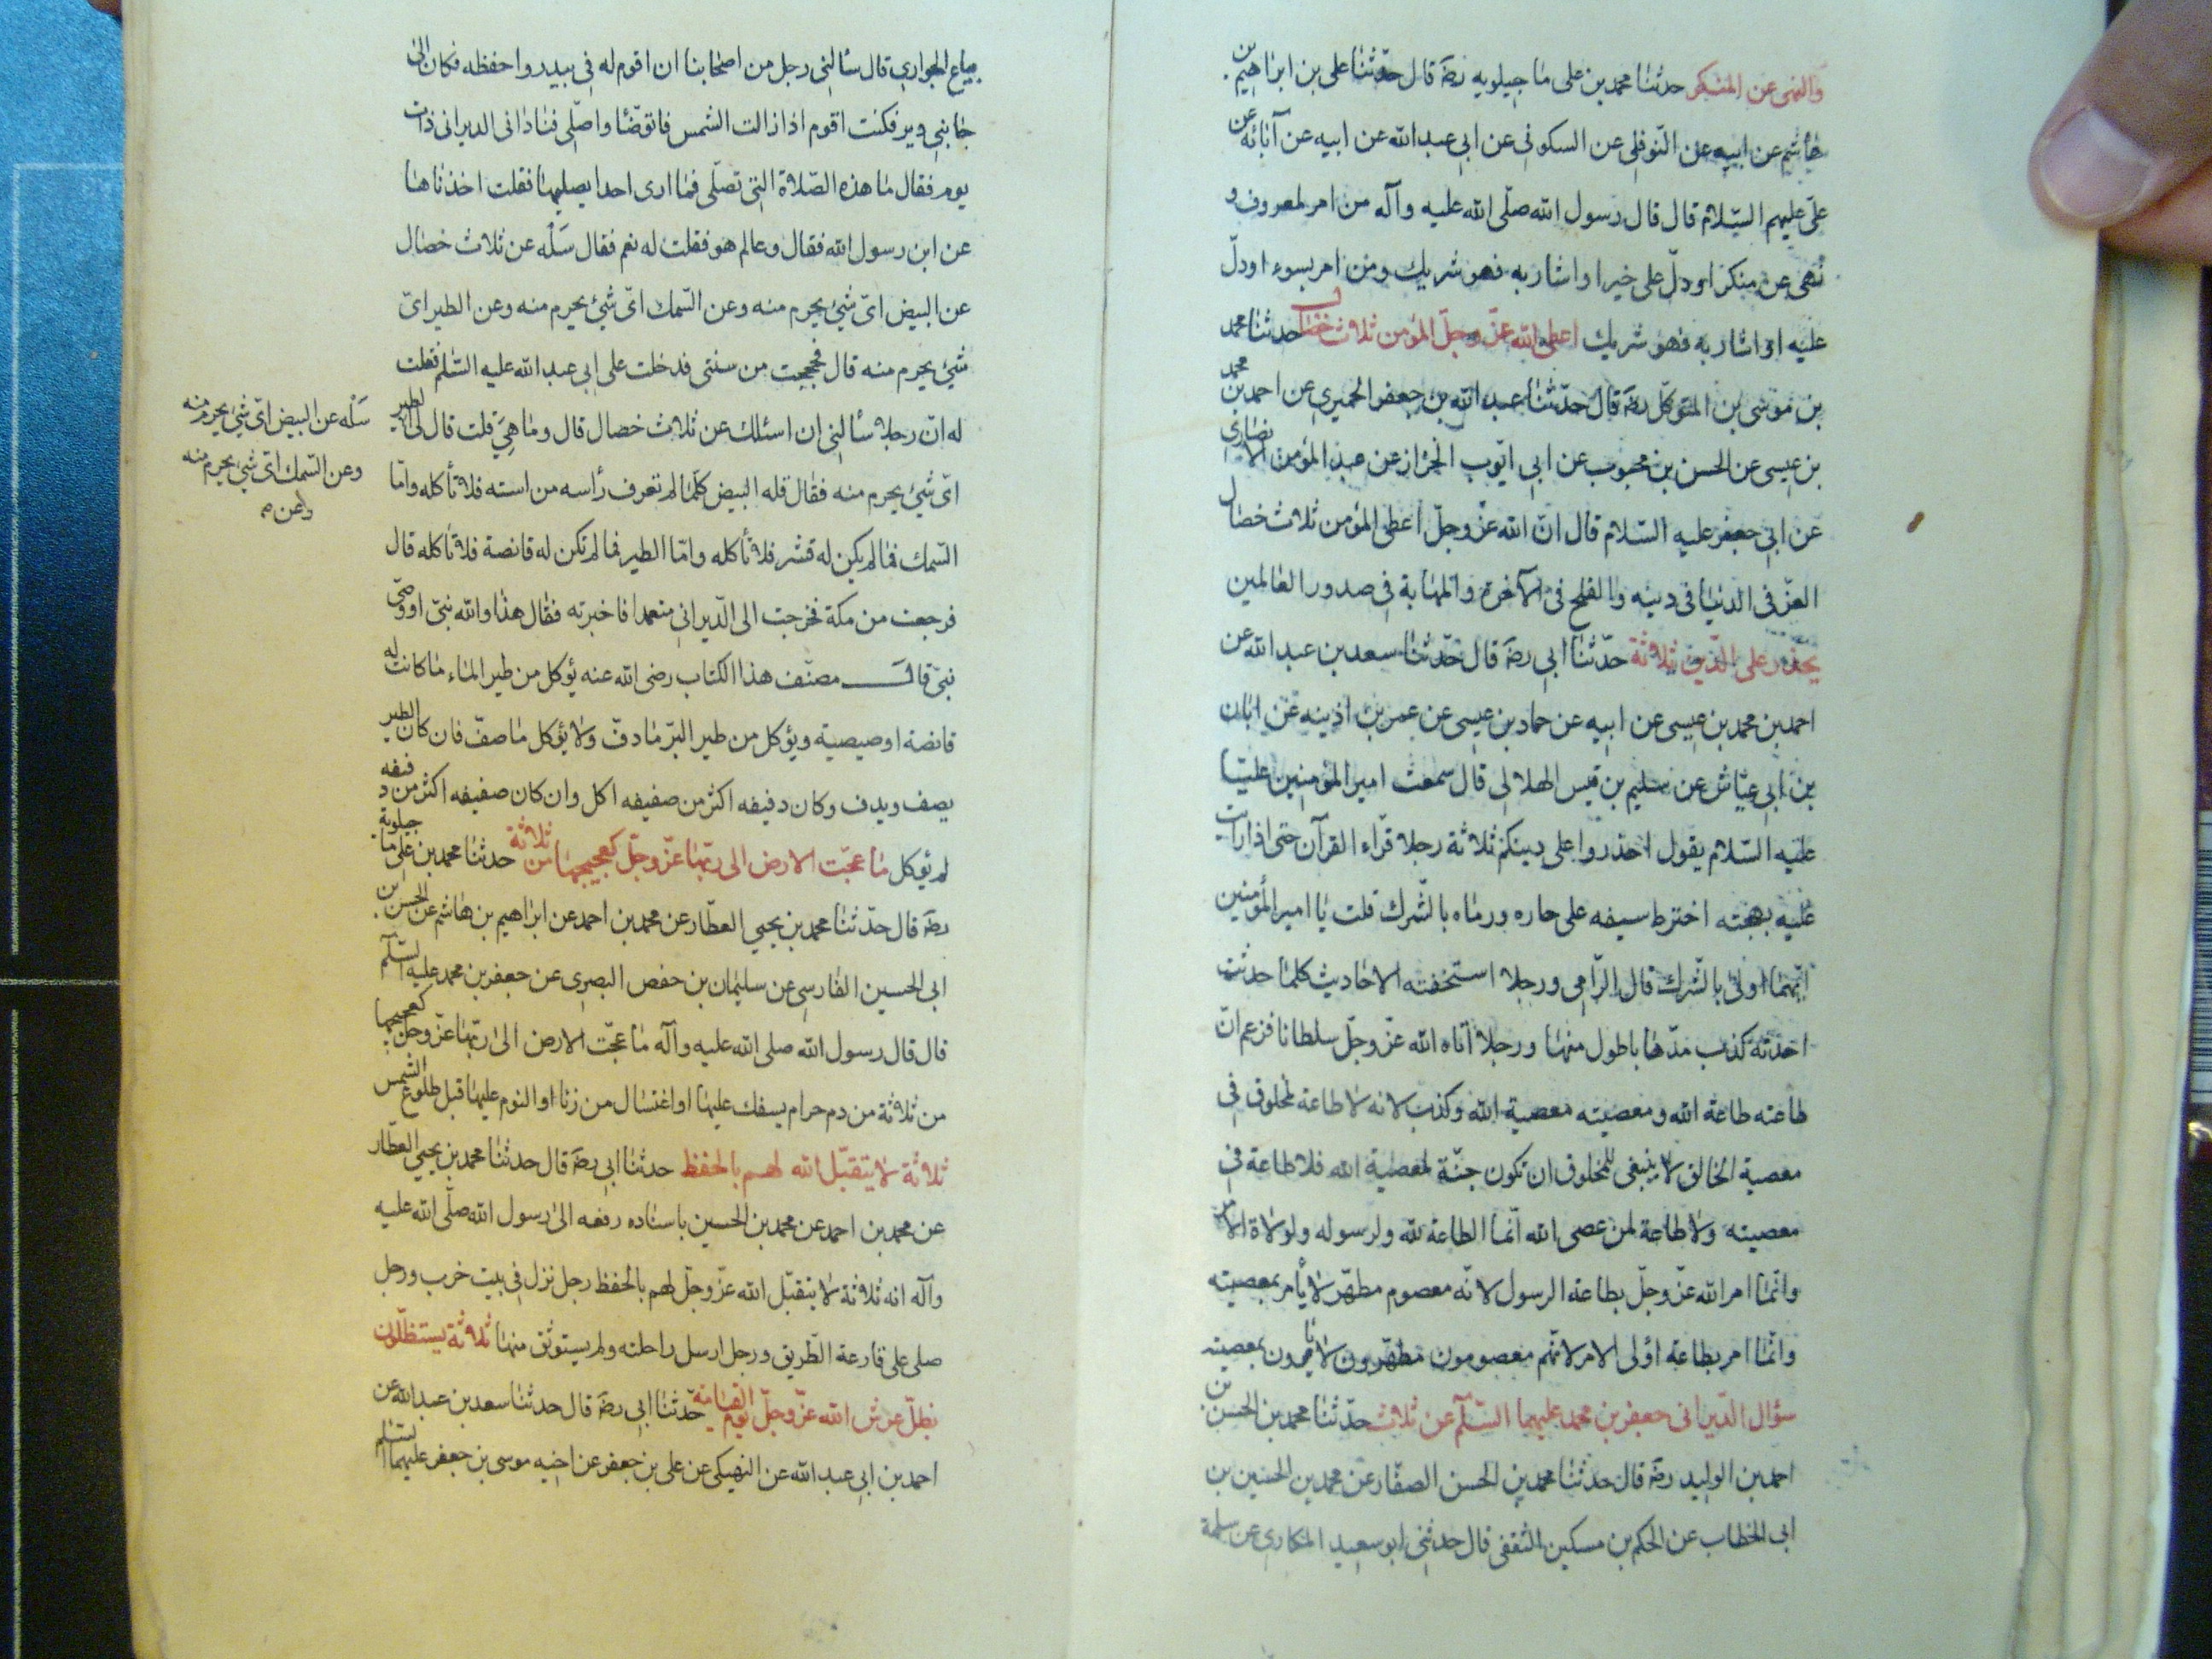 والنهی عن المنکر حدثنا محمد بن علی ما جیلویه رضه قال حدّثنا علی بن ابراهیم بن
هاشم عن ابیه عن النّوفلی عن السکونی عن ابی عبد الله عن ابیه عن آبائه عن
علی علیهم السّلام قال قال رسول الله صلّی الله علیه وآله من امر لمعروف و
نهی عن منکر اودلّ علی خیرا واشار به فهو شریك ومن امر بسوء اودلّ
علیه او اشار به فهو شریك اعطی الله عزّ وجلّ المؤمن ثلاث خصال حدثنا محمد
بن موسی بن المتوکّل رضه قال حدّثنا عبد الله بن جعفر الحمیری عن احمد بن محمد
بن عیسی عن الحسن بن محبوب عن ابی ایّوب الخزاز عن عبد المؤمن الانصاری
عن ابی جعفر علیه السّلام قال انّ الله عزّ وجلّ اعطی المؤمن ثلاث خصال
العزّ فی الدنیا فی دینه والفلح فی الآخرة والمهابة فی صدور العالمین
یحذر علی الدّین ثلاثة حدّثنا ابی رضه قال حدّثنا سعد بن عبد الله عن
احمد بن محمد بن عیسی عن ابیه عن حماد بن عیسی عن عمر بن اذینه عن ابان
بن ابی عیّاش عن سلیم بن قیس الهلالی قال سمعت امیر المؤمنین علیّا
علیه السّلام یقول احذروا علی دینکم ثلاثة رجلا قرّاء القرآن حتی اذا رایت
علیه بهجته اخترط سیفه علی جاره ورماه بالشّرك قلت یا امیر المؤمنین
ایّهما اولی بالشّرك قال الرّامی ورجلا استخفته الاحادیث کلما حدثت
احدثه کذب مدّها باطول منها ورجلا آتاه الله عزّ وجلّ سلطانا فزعم انّ
طاعته طاعة الله ومعصیته معصیة الله وکذب لانه لا طاعة لمخلوق فی
معصیة الخالق لا ینبغی للمخلوق ان تکون جنّة لمعصیة الله فلا طاعة فی
معصیته ولا طاعة لمن عصی الله انّما الطاعة لله ولرسوله ولولاة الامر
وانّما امر الله عزّ وجلّ بطاعة الرسول لانّه معصوم مطهّر لا یأمر بمعصیته
وانّما امر بطاعة اولی الامر لانّهم معصومون مطهّرون لا یأمرون بمعصیته
سؤال الدّیرانی جعفر بن محمد علیهما السّلم عن ثلاث حدّثنا محمد بن الحسن بن
احمد بن الولید رضه قال حدثنا محمد بن الحسن الصفّار عن محمد بن الحسین بن
ابی الخطاب عن الحکم بن مسکین الثقفی قال حدثنی ابو سعید المکاری عن سلمة
بیاع الجواری قال سألنی رجل من اصحابنا ان اقوم له فی بیدر واحفظه فکان الی
جانبی دیر فکنت اقوم اذا زالت الشمس فاتوضّا واصلّی فنادانی الدیرانی ذات
یوم فقال ما هذه الصّلاة التی تصلّی فما اری احدا یصلیها فقلت اخذناها
عن ابن رسول الله فقال وعالم هو فقلت له نعم فقال سَلْه عن ثلاث خصال
عن البیض ایّ شیئ یحرم منه وعن السّمك ایّ شیئ یحرم منه وعن الطیر ایّ
شیئ یحرم منه قال فحججت من سنتی فدخلت علی ابی عبد الله علیه السّلم فقلت
له انّ رجلا سألنی ان اسئلك عن ثلاث خصال قال وما هِیَ قلت قال لی الطیر
ایّ شیئ یحرم منه فقال قل له البیض کلّما لم تعرف رأسه من استه فلا تأکله وامّا
السّمك فما لم یکن له قشر فلا تأکله وامّا الطیر فما لم تکن له قانصة فلا تأکله قال
فرجعت من مکة فخرجت الی الدّیرانی متعمدا فاخبرته فقال هذا والله نبیّ او وصیّ
نبیّ قال مصنّف هذا الکتاب رضی الله عنه یؤکل من طیر الماء ما کانت له
قانصة او صیصیة ویؤکل من طیر البرّ ما دفّ ولا یؤکل ما صفّ فان کان الطیر
یصف ویدف وکان دفیفه اکثر من صفیفه اکل وان کان صفیفه اکثر من دفیفه
لم یؤکل ما عجّت الارض الی ربّها عزّ وجلّ کعجیجها من ثلاثة حدثنا محمد بن علی ما جیلویه
رضه قال حدّثنا محمد بن یحیی العطّار عن محمد بن احمد عن ابراهیم بن هاشم عن الحسن بن
ابی الحسین الفارسی عن سلیمان بن حفص البصری عن جعفر بن محمد علیه السّلم
قال قال رسول الله صلی الله علیه وآله ما عجّت الارض الی ربّها عزّ وجلّ کعجیجها
من ثلاثة من دم حرام یسفك علیها او اغتسال من زنا او النوم علیها قبل طلوع الشمس
ثلاثة لا یتقبّل الله لهم بالحفظ حدثنا ابی رضه قال حدثنا محمد بن یحیی العطّار
عن محمد بن احمد عن محمد بن الحسین باسناده رفعه الی رسول الله صلّی الله علیه
وآله انه ثلاثة لا یتقبّل الله عزّ وجلّ لهم بالحفظ رجل نزل فی بیت خرب ورجل
صلی علی قارعة الطّریق ورجل ارسل راحلته ولم یستوثق منها ثلاثة یستظلّون
بظلّ عرش الله عزّ وجلّ یوم القیامة حدّثنا ابی رضه قال حدثنا سعد بن عبد الله عن
احمد بن ابی عبد الله عن النهیکی عن علی بن جعفر عن اخیه موسی بن جعفر علیهما السّلم
سَلْه عن البیض ایّ شیئ یحرم منه
وعن السّمك ایّ شیئ یحرم منه
وعن